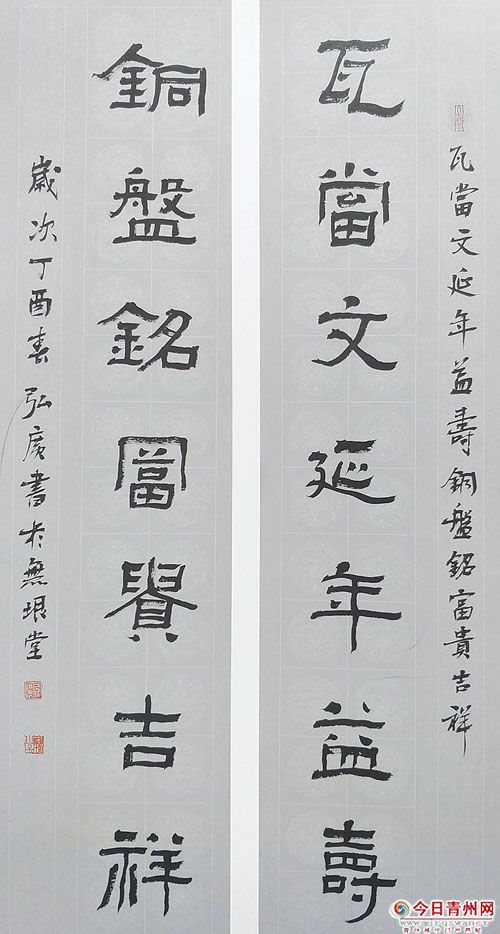 瓦當文延年益壽銅盤銘富貴吉祥
瓦當文延年益壽
銅盤銘富貴吉祥
歲次丁酉春弘廣書於無垠堂
今日青州网